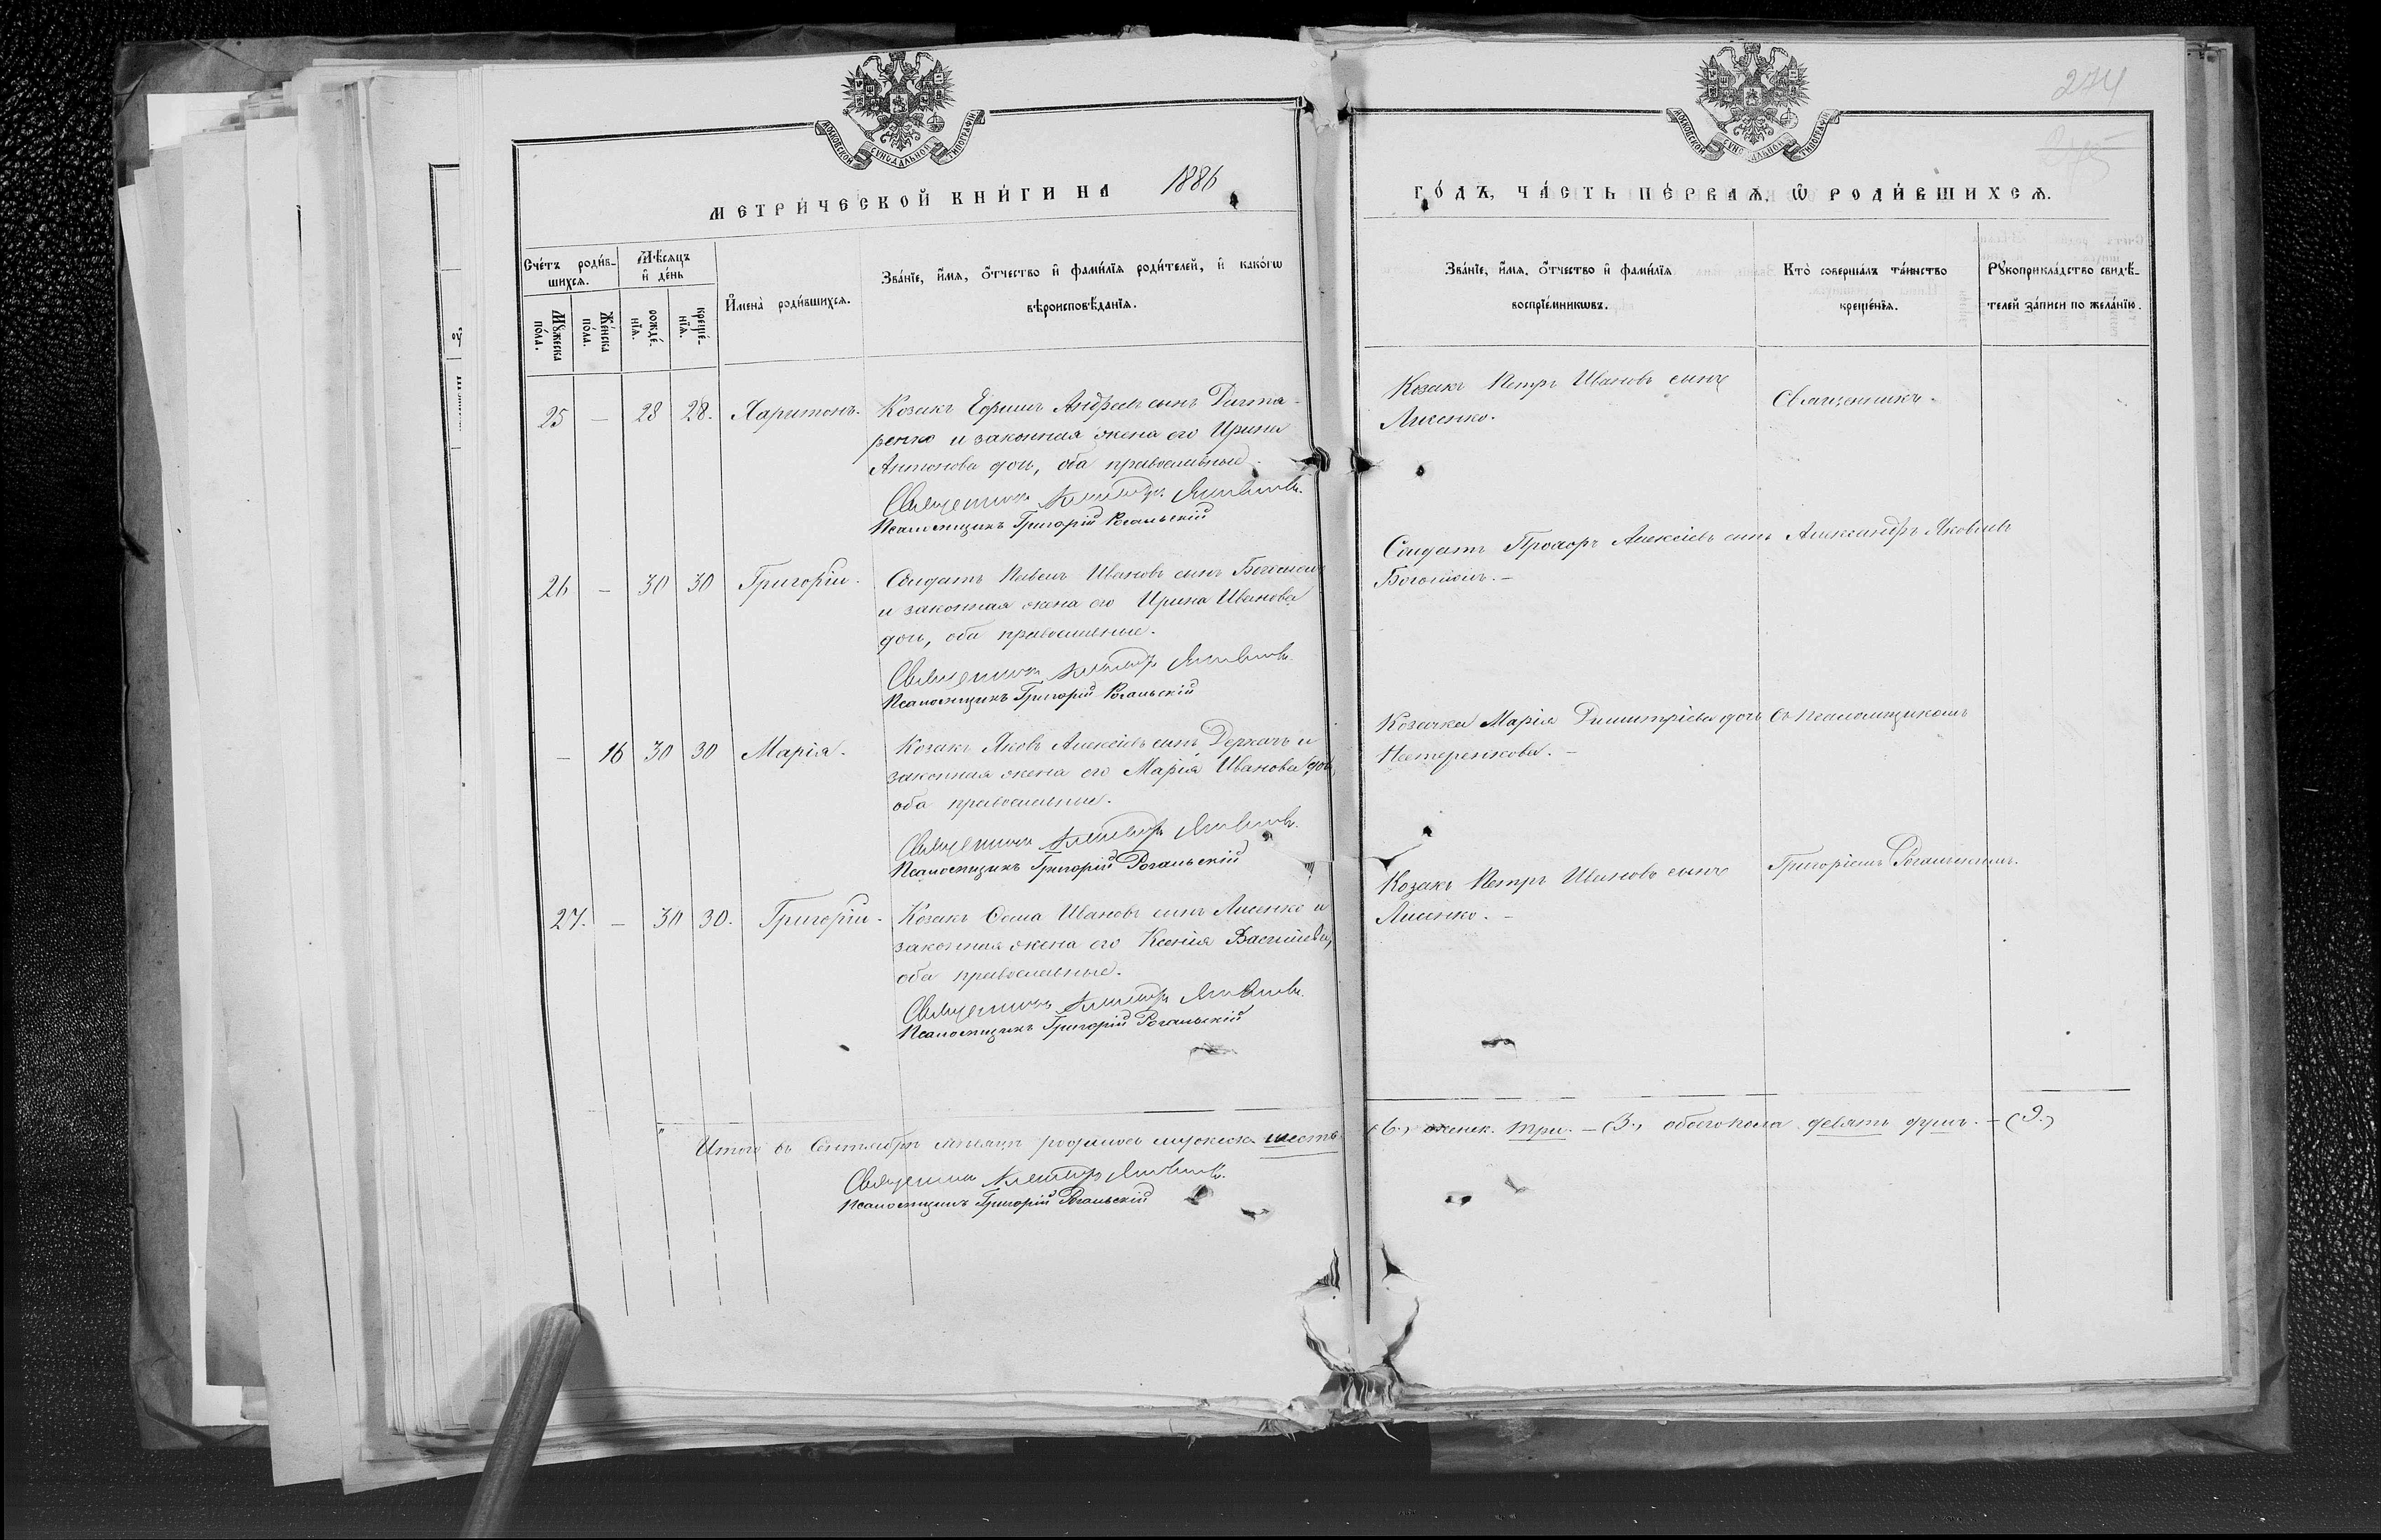 274
275
МОСКОВСКОЙ СУНОДАЛЬНОЙ ТИПОГРАФІИ
МОСКОВСКОЙ СУНОДАЛЬНОЙ ТИПОГРАФІИ
МЕТРИ́ЧЕСКОЙ КНИ́ГИ НА 1886
ГО́ДЪ, ЧА́СТЬ ПЕ́РВАѦ, Ѽ РОДИ́ВШИХСѦ.
Сче́тъ роди́в-
шихсѧ.
Мꙋ́жеска
по́ла.
Же́нска
по́ла.
Мѣ́сяцъ
и҆ де́нь
рожде́-
нїѧ.
креще́-
нїѧ.
И҆мена̀ роди́вшихсѧ.
Зва́нїе, и҆́мѧ, ѻ҆́тчество и҆ фами́лїѧ роди́телей, и҆ како́гѡ
вѣроисповѣ́данїѧ.
Зва́нїе, и҆́мѧ, ѻ҆́тчество и҆ фами́лїѧ
воспрїе́мникѡвъ.
Кто̀ соверша́лъ та́инство
креще́нїѧ.
Рꙋкоприкла́дство свидѣ́-
телей за́писи по жела́нїю.
25 — 28 28. Харитонъ.
Козакъ Ефимъ Андреевъ сынъ
и законная жена его Ирина
Антонова дочь, оба православные.
Священникъ Александръ Яковлевъ.
Псаломщикъ Григорій Рогальскій
Козакъ Петръ Ивановъ сынъ
Лисенко.
Священникъ
26 — 30 30 Григорій.
Солдатъ Павелъ Ивановъ сынъ
и законная жена его Ирина Иванова
дочь, оба православные.
Священникъ Александръ Яковлевъ.
Псаломщикъ Григорій Рогальскій
Солдатъ Прохоръ Алексіевъ сынъ
Александръ Яковлевъ
— 16 30 30 Марія.
Козакъ Яковъ Алексіевъ сынъ Деркачъ и
законная жена его Марія Иванова дочь,
оба православные.
Священникъ Александръ Яковлевъ.
Псаломщикъ Григорій Рогальскій
Козачка Марія Димитріева дочь
Нестеренкова. —
съ псаломщикомъ
27. — 30 30. Григорій.
Козакъ Ѳома Ивановъ сынъ Лисенко и
законная жена его Ксенія Васильева,
оба православные.
Священникъ Александръ Яковлевъ.
Псаломщикъ Григорій Рогальскій
Козакъ Петръ Ивановъ сынъ
Лисенко. —
Григоріемъ Рогальскимъ.
Итого въ Сентябрѣ мѣсяцѣ родилось мужеск. шесть (6.), женск. три. — (3.), обоего пола девять душъ. — (9.)
Священникъ Александръ Яковлевъ.
Псаломщикъ Григорій Рогальскій